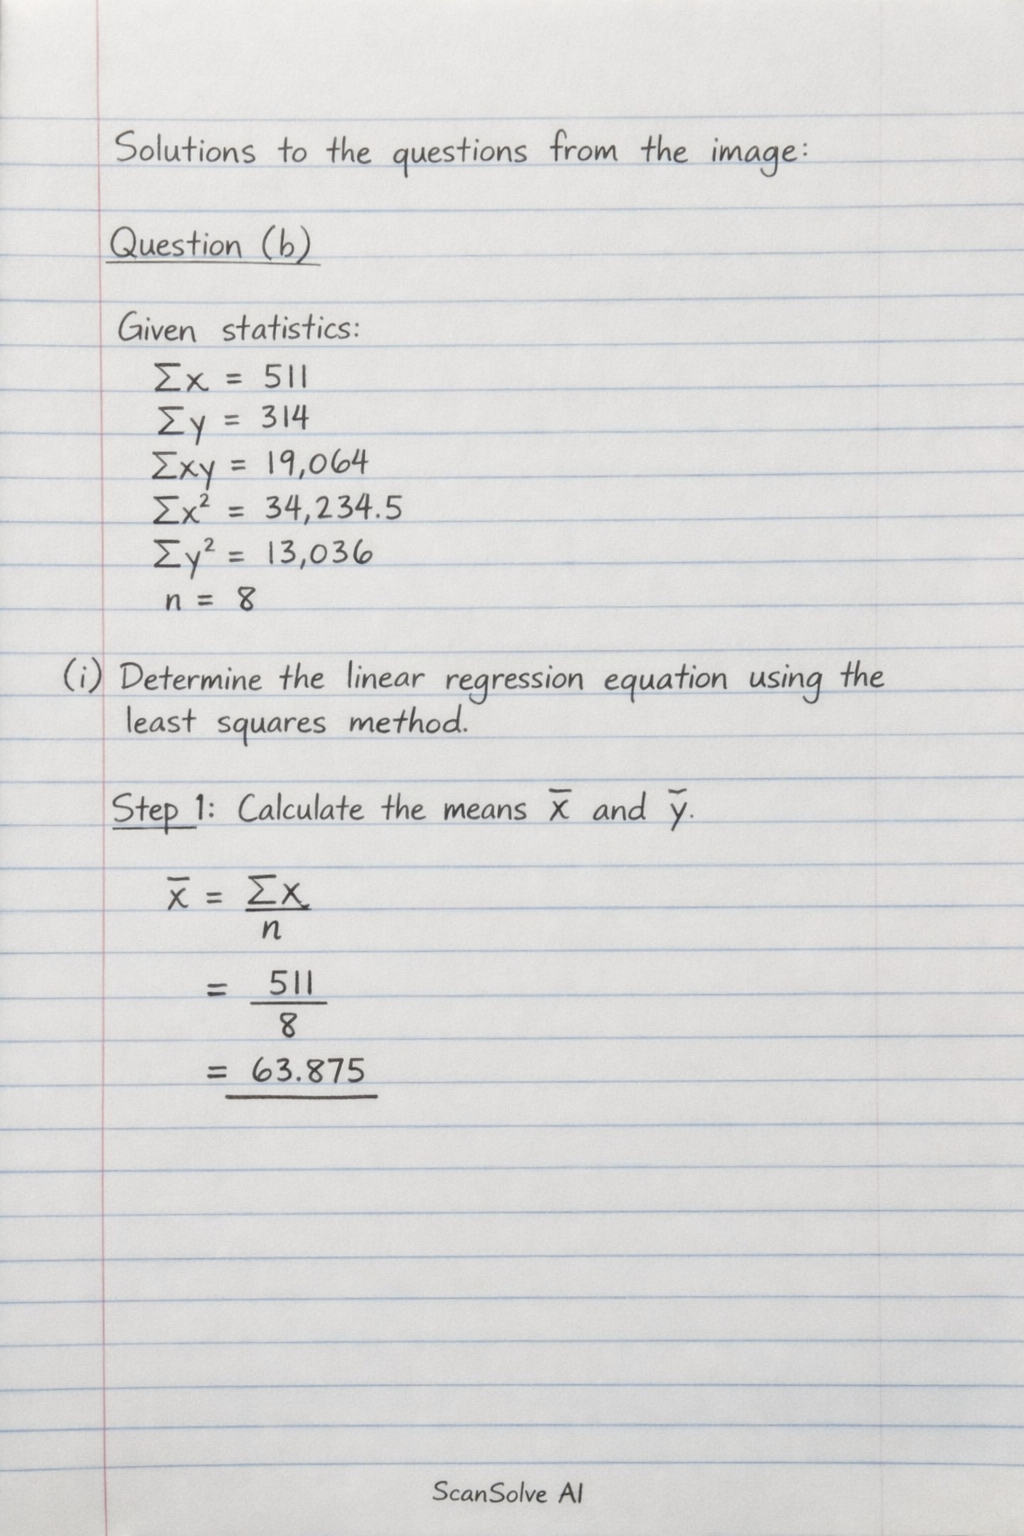 Solutions to the questions from the image:
Question (b)
Given statistics:
Σx = 511
Σy = 314
Σxy = 19,064
Σx² = 34,234.5
Σy² = 13,036
n = 8
(i) Determine the linear regression equation using the
least squares method.
Step 1: Calculate the means x̄ and ȳ.
x̄ = Σx
n
= 511
8
= 63.875
ScanSolve AI